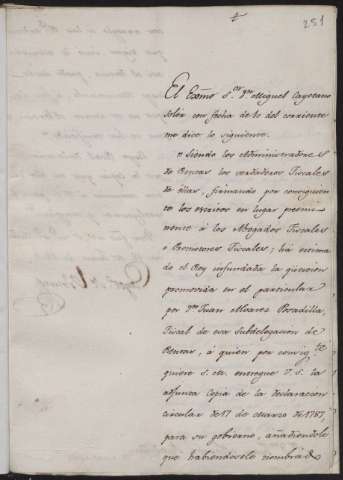 251
El Exmo S.or D.n Miguel Cayetano
Soler con fecha de 10 del corriente
me dice lo siguiente.
"Siendo los Administradores
de Rentas los verdaderos Fiscales
de ellas, firmando por consiguien
te los escritos en lugar preemi
nente á los Abogados Fiscales
o Promotores Fiscales; há estima
do el Rey infundada la question
promovida en el particular
por D.n Juan Alvares Posadilla,
Fiscal de esa Subdelegacion de
Rentas, á quien por consig.te
quiere S. M. entregue V. S. la
adjunta Copia de la declaracion
circular de 17 de Marzo de 1787,
para su gobierno, añadiendole
que habiendosele nombrado